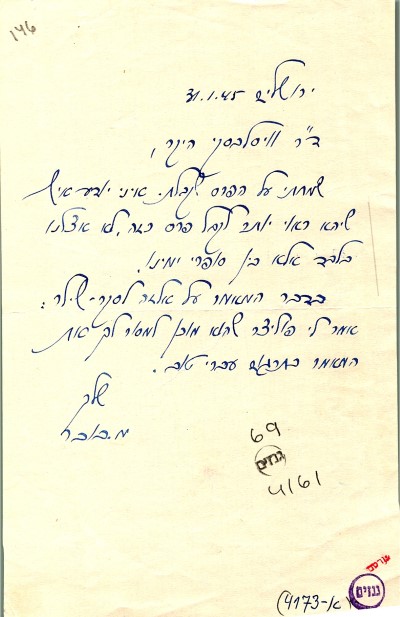 146
ירושלים 31.1.45
ד"ר וויסלבסקי היקר,
שמחתי על הפרס שקבלת. איני יודע איש
שיהא ראוי יותר לקבל פרס כזה, לא אצלנו
בלבד אלא בין סופרי ימינו.
בדבר המאמר על אלזה לסקר-שילר:
אמר לי פליצר שהוא מוכן למסור לך את
המאמר בתרגום עברי טוב.
שלך
מ. בובר
69
גנזים
4161
גנזים
א-4173)